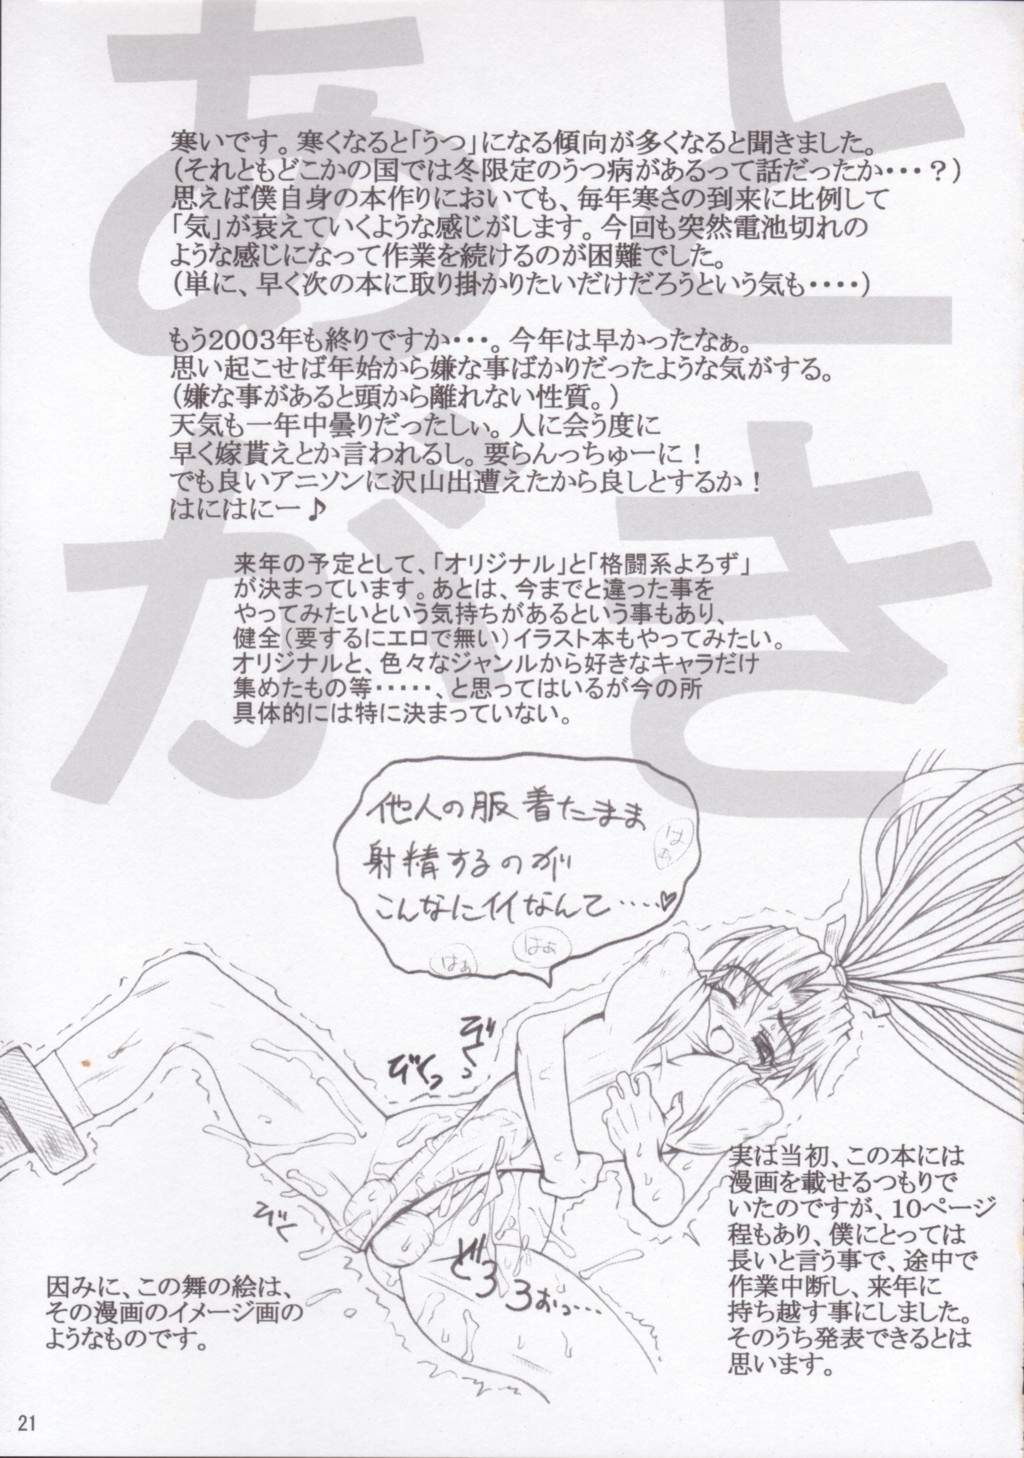 あとがき
寒いです。寒くなると「うつ」になる傾向が多くなると聞きました。
(それともどこかの国では冬限定のうつ病があるって話だったか・・・？)
思えば僕自身の本作りにおいても、毎年寒さの到来に比例して
「気」が衰えていくような感じがします。今回も突然電池切れの
ような感じになって作業を続けるのが困難でした。
(単に、早く次の本に取り掛かりたいだけだろうという気も・・・・)
もう2003年も終りですか・・・。今年は早かったなぁ。
思い起こせば年始から嫌な事ばかりだったような気がする。
(嫌な事があると頭から離れない性質。)
天気も一年中曇りだったしぃ。人に会う度に
早く嫁貰えとか言われるし。要らんっちゅーに！
でも良いアニソンに沢山出遭えたから良しとするか！
はにはにー♪
来年の予定として、「オリジナル」と「格闘系よろず」
が決まっています。あとは、今までと違った事を
やってみたいという気持ちがあるという事もあり、
健全(要するにエロで無い)イラスト本もやってみたい。
オリジナルと、色々なジャンルから好きなキャラだけ
集めたもの等・・・・・、と思ってはいるが今の所
具体的には特に決まっていない。
他人の服着たまま
射精するのが
こんなにイイなんて……♡
はぁ
はぁ
はぁ
びくっ
びくっ
びく
どろろろぉっ…
実は当初、この本には
漫画を載せるつもりで
いたのですが、10ページ
程もあり、僕にとっては
長いと言う事で、途中で
作業中断し、来年に
持ち越す事にしました。
そのうち発表できるとは
思います。
因みに、この舞の絵は、
その漫画のイメージ画の
ようなものです。
21